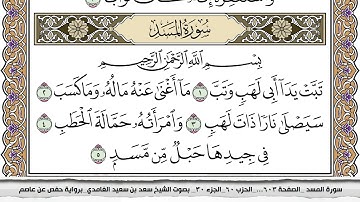 سُورَةُ المَسَدِ
بِسْمِ اللَّهِ الرَّحْمَٰنِ الرَّحِيمِ
تَبَّتْ يَدَا أَبِي لَهَبٍ وَتَبَّ ١ مَا أَغْنَىٰ عَنْهُ مَالُهُ وَمَا كَسَبَ ٢
سَيَصْلَىٰ نَارًا ذَاتَ لَهَبٍ ٣ وَامْرَأَتُهُ حَمَّالَةَ الْحَطَبِ ٤
فِي جِيدِهَا حَبْلٌ مِّن مَّسَدٍ ٥
سورة المسد _الصفحة ٦٠٣ _ الحزب ٦٠_الجزء ٣٠_ بصوت الشيخ سعد بن سعيد الغامدي _برواية حفص عن عاصم